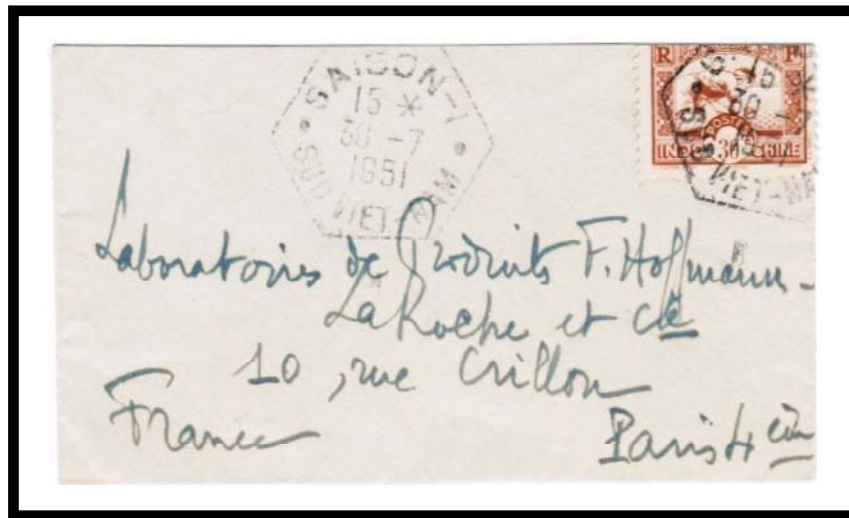 SAIGON-1
15 *
30 -7
1951
SUD VIET-NAM
R F
15 *
30 -7
POSTES
INDOCHINE
VIET-NA
Laboratoires de Produits F. Hoffmann-
LaRoche et Cie
10, rue Crillon
France
Paris 4 eme